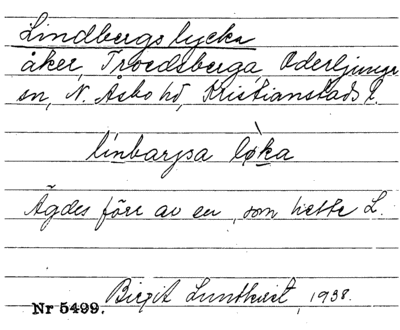 Lindbergs lycka
åker, Troedsberga, Oderljunga
sn, N. Åsbo hd, Kristianstads l.
línbarʒsa lø̀ka
Ägdes förr av en, som hette L.
Birgit Lundkvist, 1938.
Nr 5499.